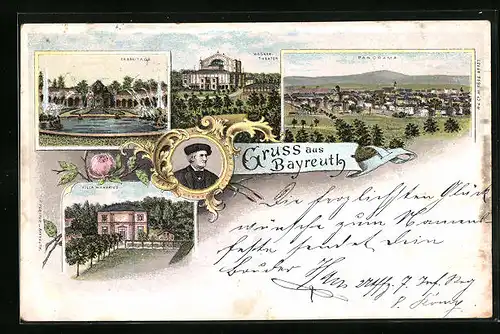 EREMITAGE
WAGNER-
THEATER
PANORAMA
Gruss aus
Bayreuth
VILLA WAHNFRIED
Die herzlichsten Glück
wünsche zum Namens
feste sendet dein
Bruder
7. Inf. Reg